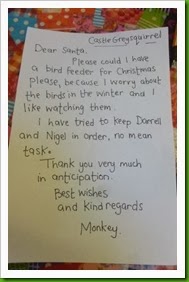 Castle Greysquirrel
Dear Santa.
Please could I have
a bird feeder for Christmas
please, because I worry about
the birds in the winter and I
like watching them.
I have tried to keep Darrell
and Nigel in order, no mean
task.
Thank you very much
in anticipation.
Best wishes
and kind regards
Monkey.